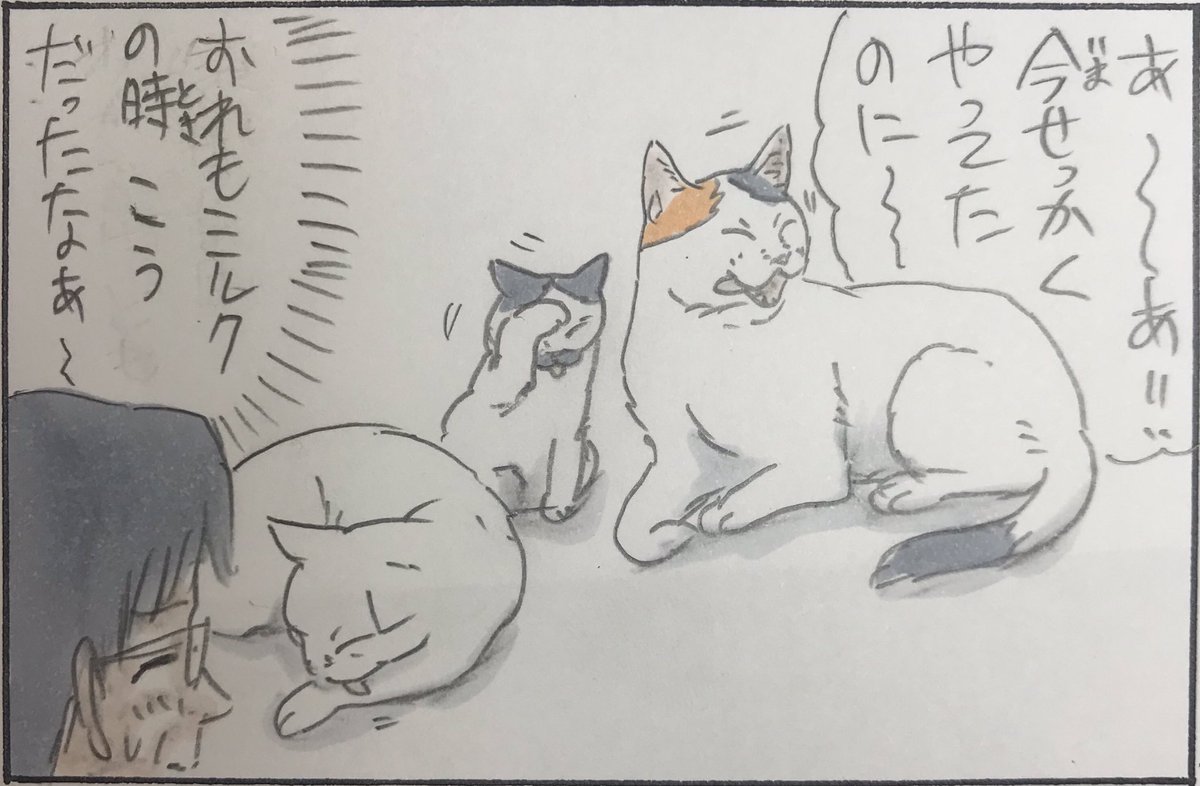 あ〜〜あ!!
今せっかく
いま
やってた
のに〜
おれもミルク
の時 こう
とき
だったなぁ〜